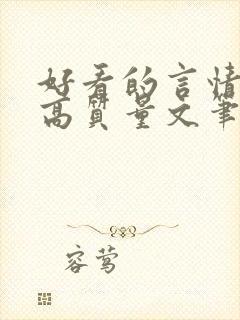 好看的言情
高质量文笔
容莺